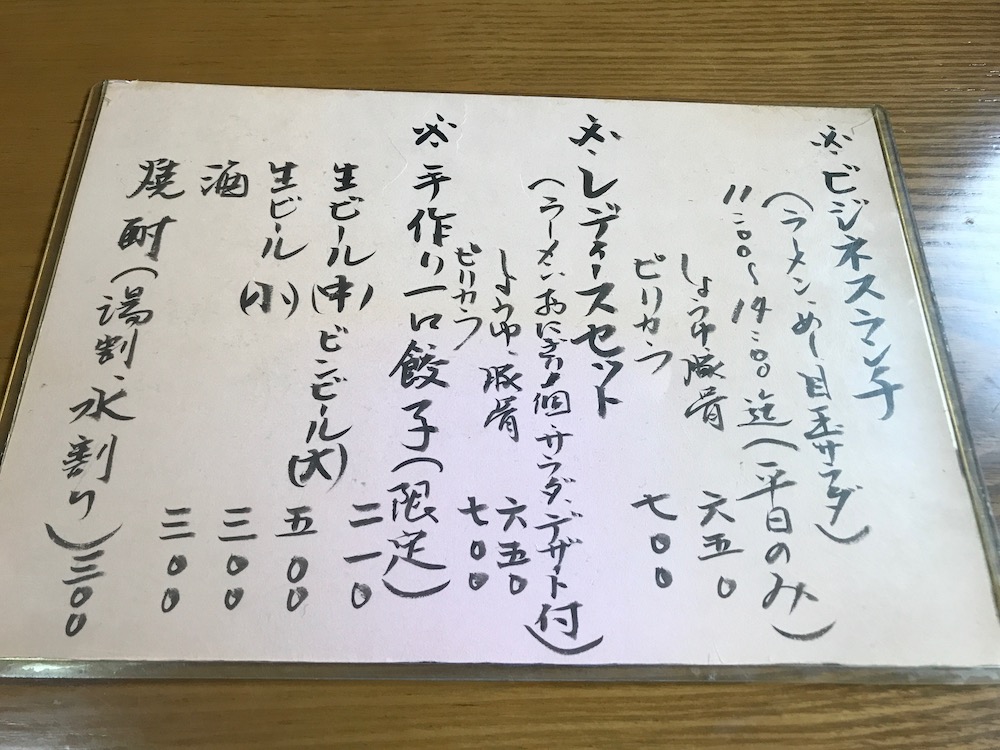 ※ビジネスランチ
(ラーメン、めし目玉サラダ)
11:00〜14:00迄(平日のみ)
しょうゆ豚骨 六五0
ピリカラ 七00
※レディースセット
(ラーメン、おにぎり1個、サラダ、デザート付)
しょうゆ、豚骨 六五0
ピリカラ 七00
※手作り一口餃子(限定) 二一0
生ビール(中)ビンビール(大) 五00
生ビール(小) 三00
酒 三00
焼酎(湯割、水割り)三00